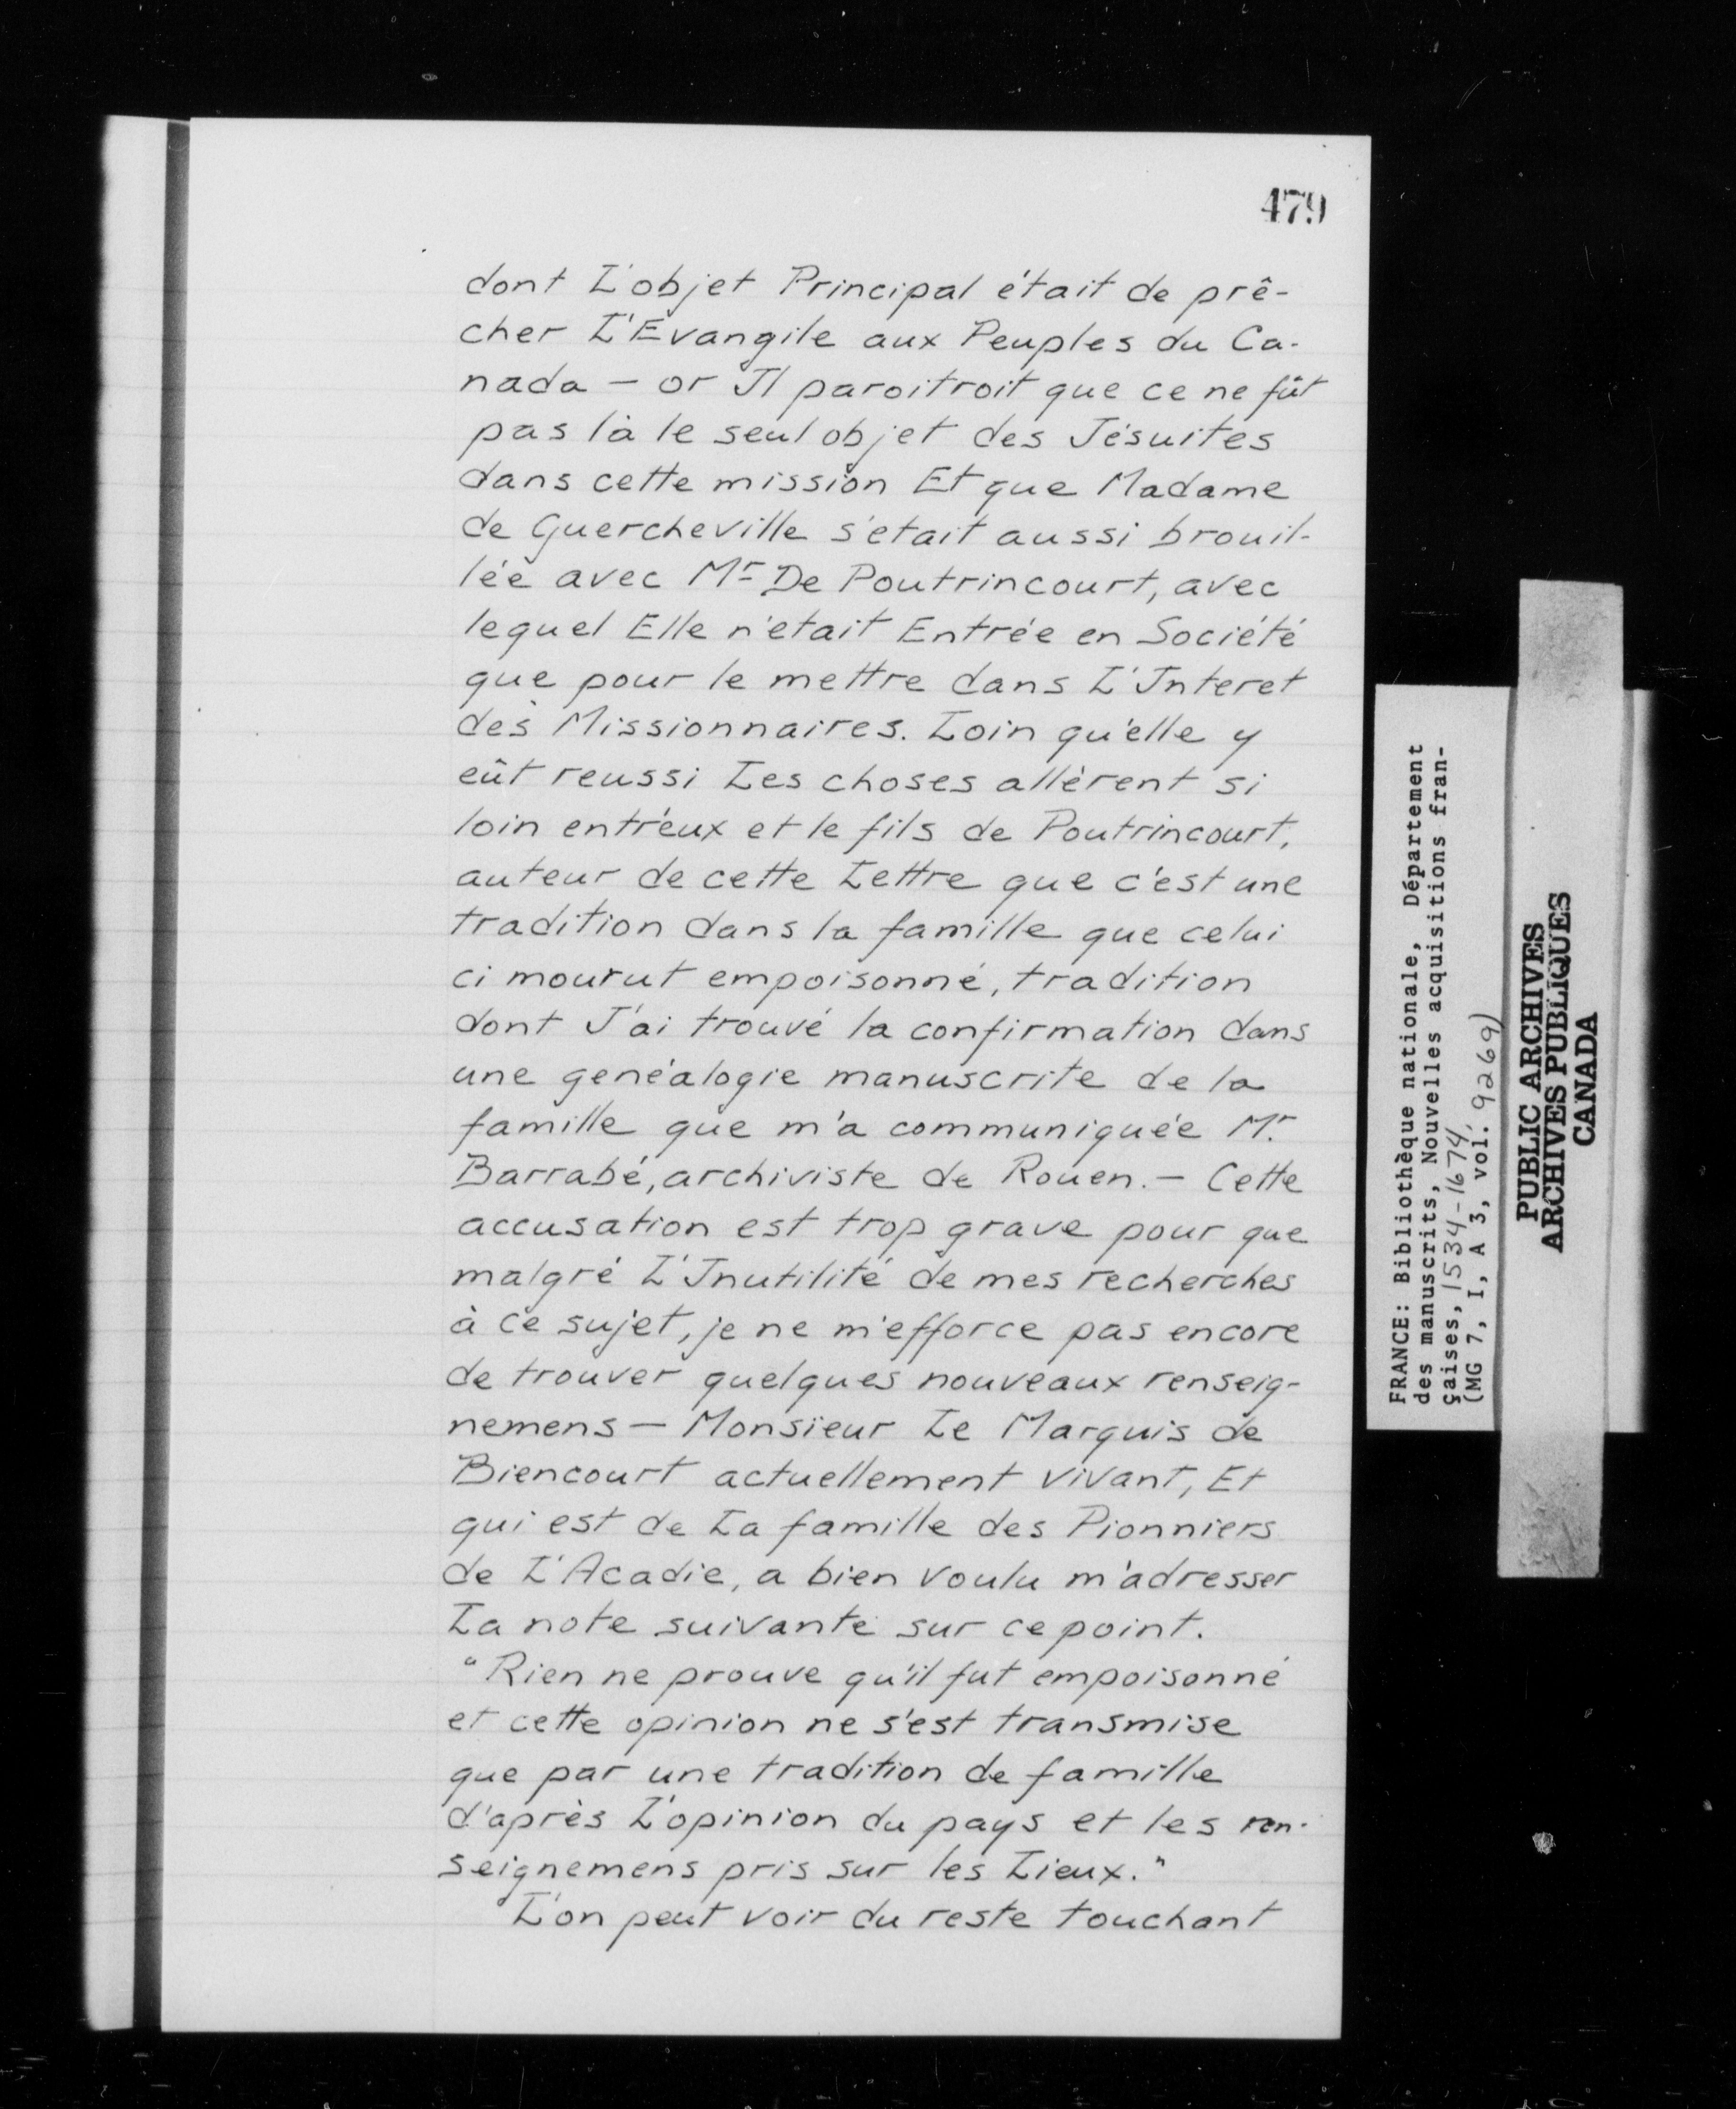 479
dont L'objet Principal était de prê-
cher L'Evangile aux Peuples du Ca-
nada — or Il paroitroit que ce ne fût
pas là le seul objet des Jésuites
dans cette mission Et que Madame
de Guercheville s'etait aussi brouil-
lée avec Mr De Poutrincourt, avec
lequel Elle n'etait Entrée en Société
que pour le mettre dans L'Interet
des Missionnaires. Loin qu'elle y
eût reussi Les choses allèrent si
loin entr'eux et le fils de Poutrincourt,
auteur de cette Lettre que c'est une
tradition dans la famille que celui
ci mourut empoisonné, tradition
dont J'ai trouvé la confirmation dans
une genéalogie manuscrite de la
famille que m'a communiquée Mr.
Barrabé, archiviste de Rouen. — Cette
accusation est trop grave pour que
malgré L'Inutilité de mes recherches
à ce sujet, je ne m'efforce pas encore
de trouver quelques nouveaux renseig-
nemens — Monsieur Le Marquis de
Biencourt actuellement vivant, Et
qui est de La famille des Pionniers
de L'Acadie, a bien voulu m'adresser
La note suivante sur ce point.
"Rien ne prouve qu'il fut empoisonné
et cette opinion ne s'est transmise
que par une tradition de famille
d'après L'opinion du pays et les ren-
seignemens pris sur les Lieux."
L'on peut voir du reste touchant
FRANCE: Bibliothèque nationale, Département
des manuscrits, Nouvelles acquisitions fran-
çaises, 1534-1674,
(MG 7, I, A 3, vol. 9269)
PUBLIC ARCHIVES
ARCHIVES PUBLIQUES
CANADA